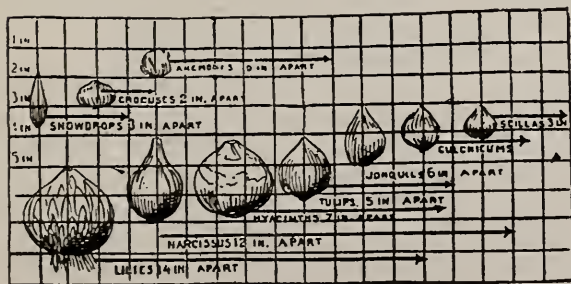 1 IN
2 IN
ANEMONES 6 IN APART
3 IN
CROCUSES 2 IN. APART
4 IN
SNOWDROPS 3 IN APART
SCILLAS 3 IN
COLCHICUMS
5 IN
JONQUILS 6 IN APART
TULIPS. 5 IN APART
HYACINTHS. 7 IN. APART
NARCISSUS 12 IN. APART
LILIES 14 IN APART